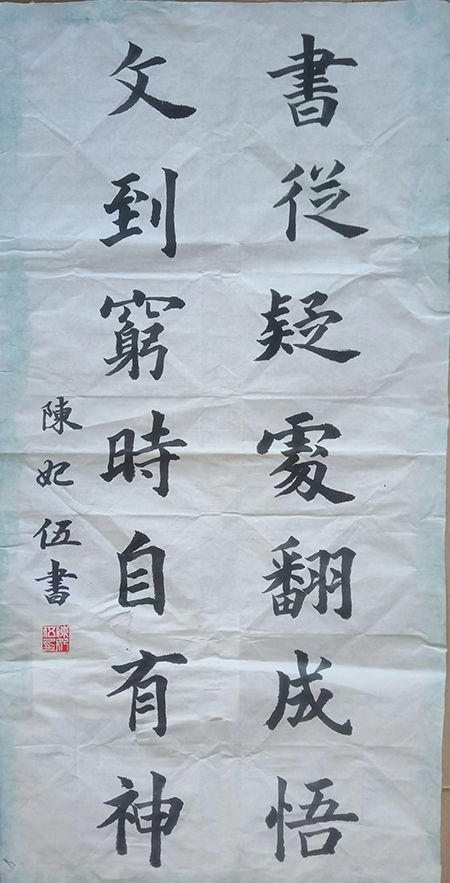 書從疑處翻成悟
文到窮時自有神
陳妃伍書